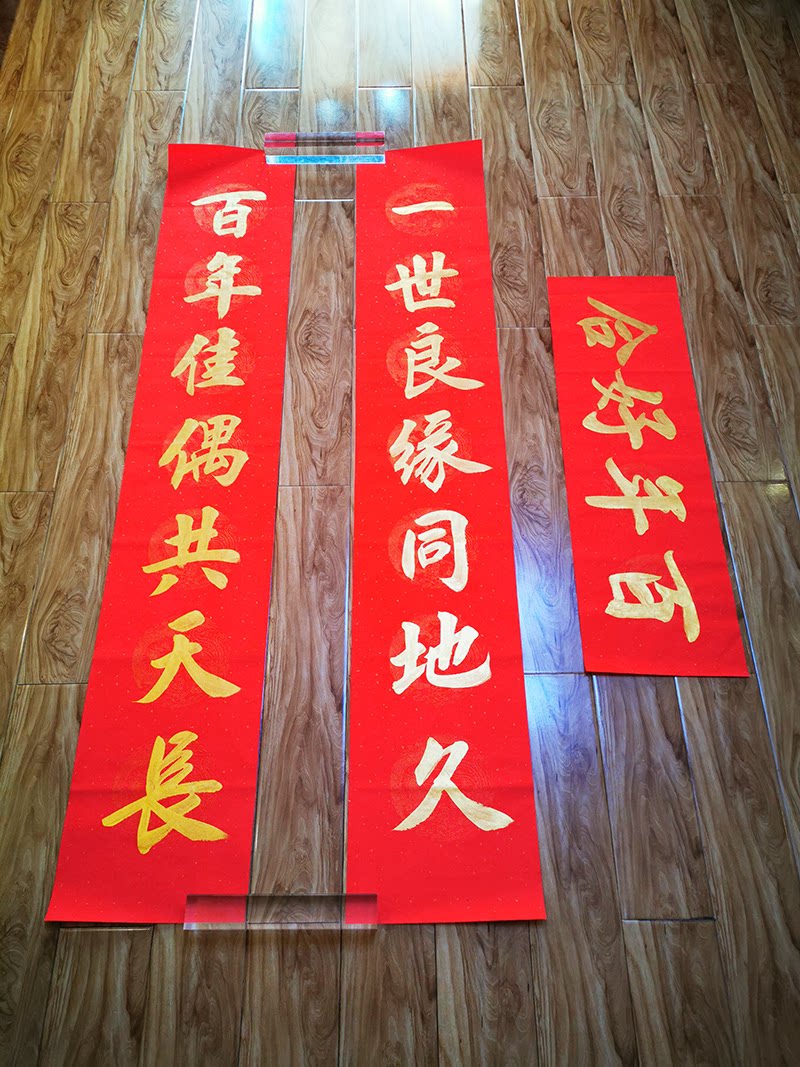 一世良缘同地久
百年佳偶共天長
百年好合